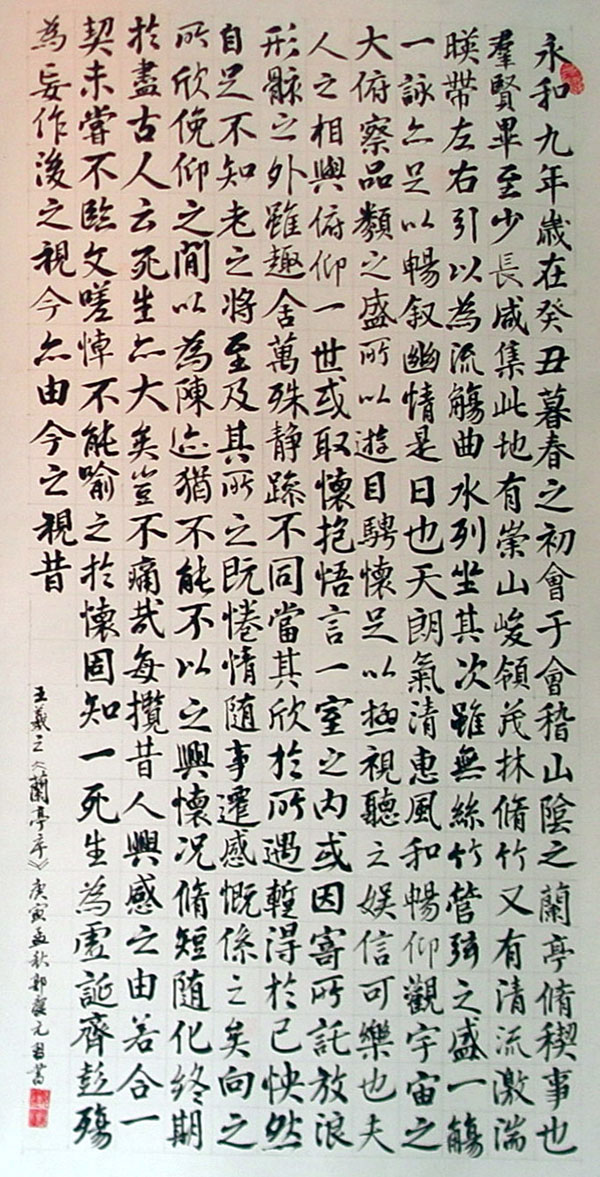 永和九年歲在癸丑暮春之初會于會稽山陰之蘭亭脩稧事也
羣賢畢至少長咸集此地有崇山峻領茂林脩竹又有清流激湍
暎帶左右引以為流觴曲水列坐其次雖無絲竹管弦之盛一觴
一詠亦足以暢叙幽情是日也天朗氣清惠風和暢仰觀宇宙之
大俯察品類之盛所以遊目騁懷足以極視聽之娛信可樂也夫
人之相與俯仰一世或取懷抱悟言一室之内或因寄所託放浪
形骸之外雖趣舍萬殊静躁不同當其欣於所遇蹔得於己怏然
自足不知老之將至及其所之既惓情随事遷感慨係之矣向之
所欣俛仰之閒以為陳迹猶不能不以之興懷况脩短随化終期
於盡古人云死生亦大矣豈不痛哉每攬昔人興感之由若合一
契未嘗不臨文嗟悼不能喻之於懷固知一死生為虛誕齊彭殤
為妄作後之視今亦由今之視昔
王羲之《蘭亭序》庚寅孟秋